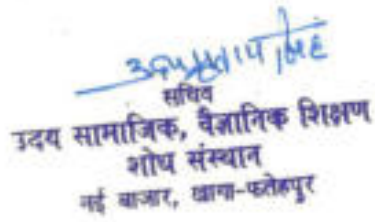 सचिव
उदय सामाजिक, वैज्ञानिक शिक्षण
शोध संस्थान
नई बाजार, खागा-फतेहपुर